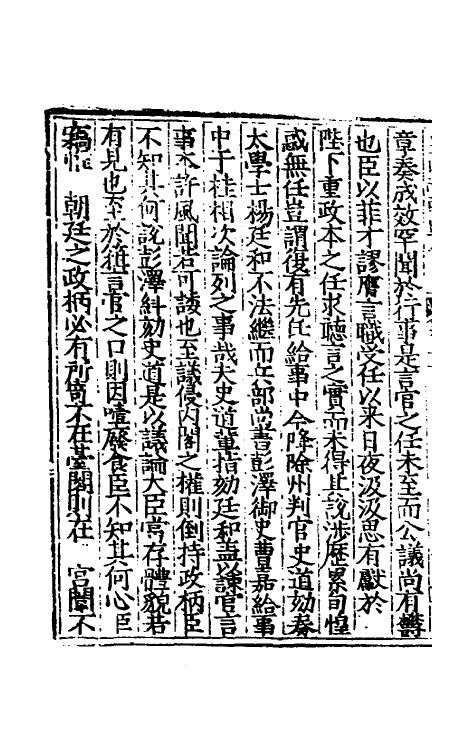 章奏成效罕聞於行事是言官之任未至而公議尚有鬱
也臣以菲才謬膺言職受任以來日夜汲汲思有獻於
陛下重政本之任求聽言之實而未得其說涉歷累旬惶
惑無任豈謂復有先任給事中今降除州判官史道劾奏
太學士楊廷和不法繼而兵部尚書彭澤御史曹嘉給事
中于桂相次論列之事哉夫史道輩指劾廷和盖以諫官言
事本許風聞若可諉也至議優內閣之權則倒持政柄臣
不知其何說彭澤糾劾史道是以議論大臣當存體貌若
有見也至於箝言官之口則因噎廢食臣不知其何心臣
竊惟 朝廷之政柄必有所寄不在臺閣則在 宮闈不